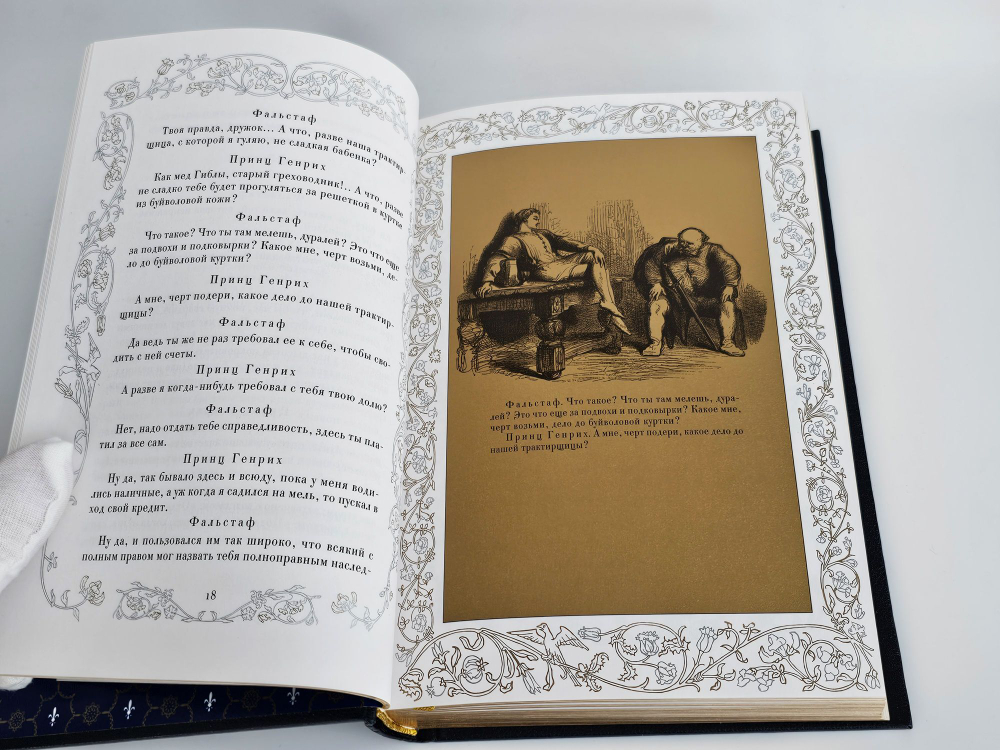 Фальстаф
Твоя правда, дружок... А что, разве наша трактир-
щица, с которой я гуляю, не сладкая бабенка?
Принц Генрих
Как мед Гиблы, старый греховодник!.. А что, разве
не сладко тебе будет прогуляться за решеткой в куртке
из буйволовой кожи?
Фальстаф
Что такое? Что ты там мелешь, дуралей? Это что еще
за подвохи и подковырки? Какое мне, черт возьми, де-
ло до буйволовой куртки?
Принц Генрих
А мне, черт подери, какое дело до нашей трактир-
щицы?
Фальстаф
Да ведь ты же не раз требовал ее к себе, чтобы сво-
дить с ней счеты.
Принц Генрих
А разве я когда-нибудь требовал с тебя твою долю?
Фальстаф
Нет, надо отдать тебе справедливость, здесь ты пла-
тил за все сам.
Принц Генрих
Ну да, так бывало здесь и всюду, пока у меня води-
лись наличные, а уж когда я садился на мель, то пускал в
ход свой кредит.
Фальстаф
Ну да, и пользовался им так широко, что всякий с
полным правом мог назвать тебя полноправным наслед-
18
Фальстаф. Что такое? Что ты там мелешь, дура-
лей? Это что еще за подвохи и подковырки? Какое мне,
черт возьми, дело до буйволовой куртки?
Принц Генрих. А мне, черт подери, какое дело до
нашей трактирщицы?